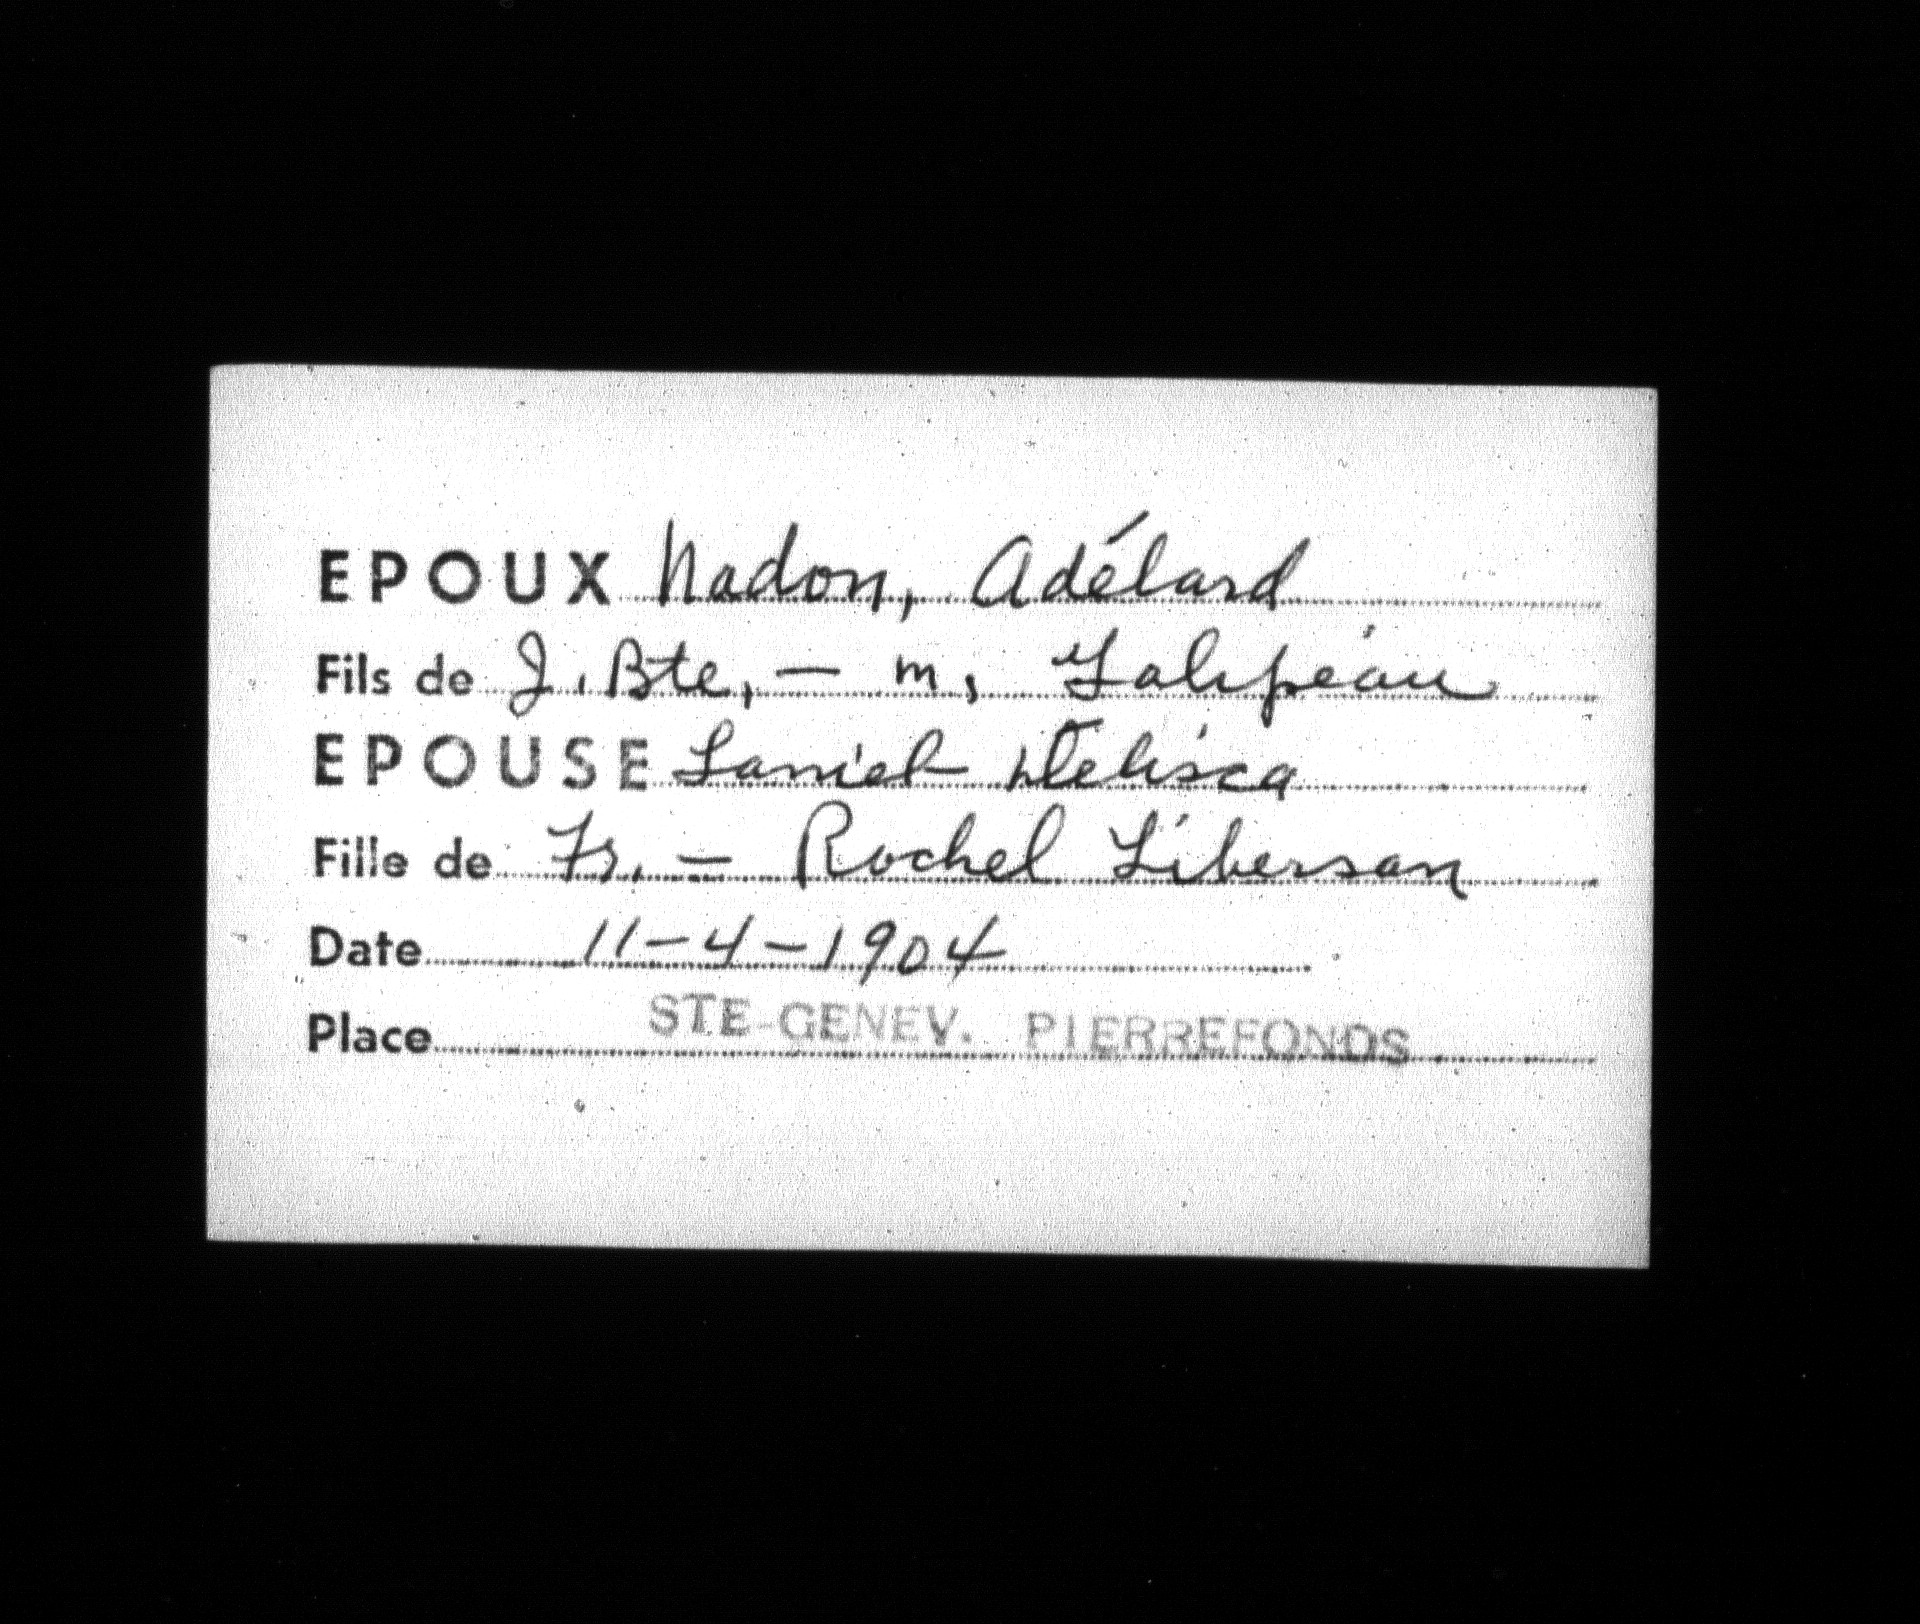 EPOUX Nadon, Adélard
Fils de J. Bte, — m, Galipeau
EPOUSE Laniel Délisca
Fille de Fr. — Rachel Liberson
Date 11-4-1904
Place STE-GENEV. PIERREFONDS